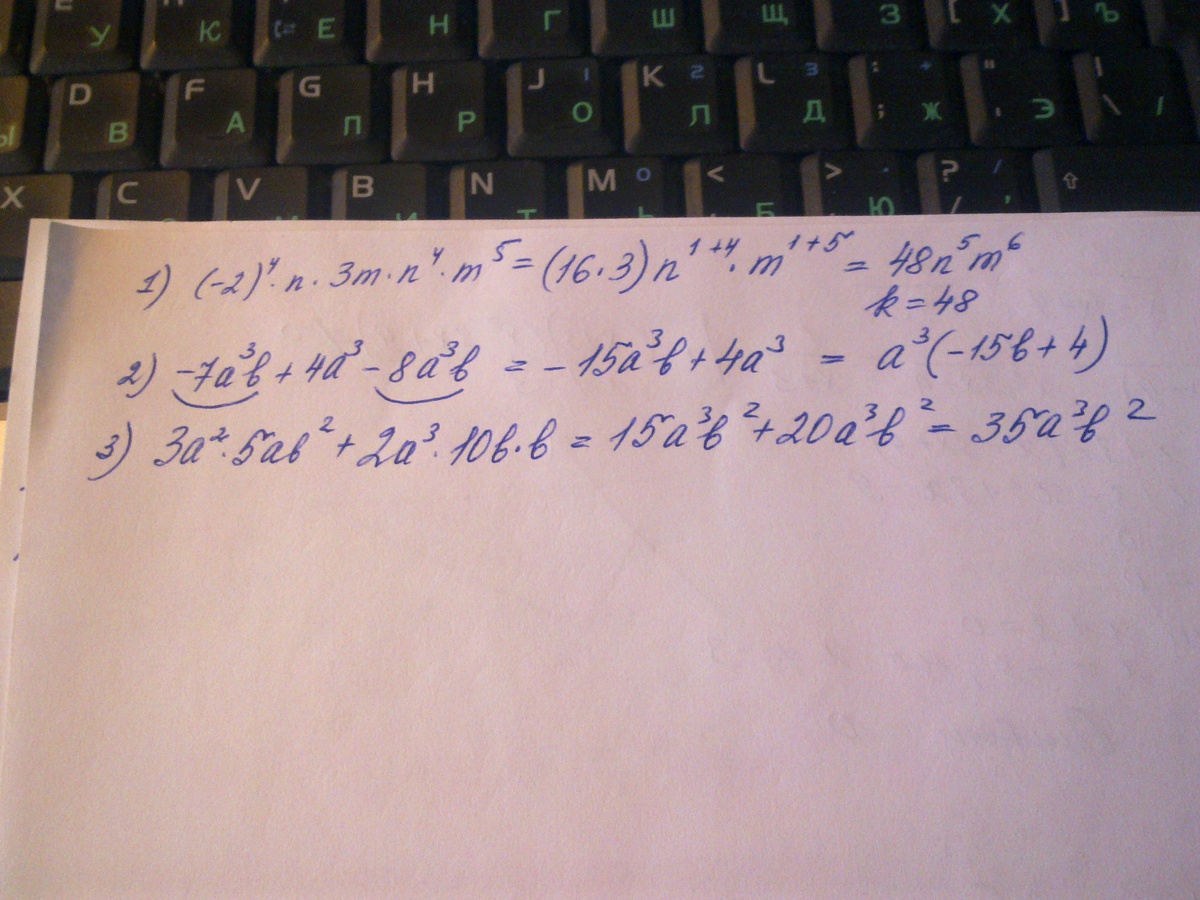 У К Е Н Г Ш Щ З [ Х ] Ъ
Ы D В F А G П H Р J 1 О K 2 Л L 3 Д : + ; Ж " ' Э | \ /
X C V B N M 0 < > . ? / ⇧
/ Б Ю / ,
1) (-2)⁴·n·3m·n⁴·m⁵=(16·3)n¹⁺⁴·m¹⁺⁵ = 48n⁵m⁶
k=48
2) -7a³b+4a³-8a³b = -15a³b+4a³ = a³(-15b+4)
3) 3a²·5ab²+2a³·10b·b = 15a³b²+20a³b² = 35a³b²